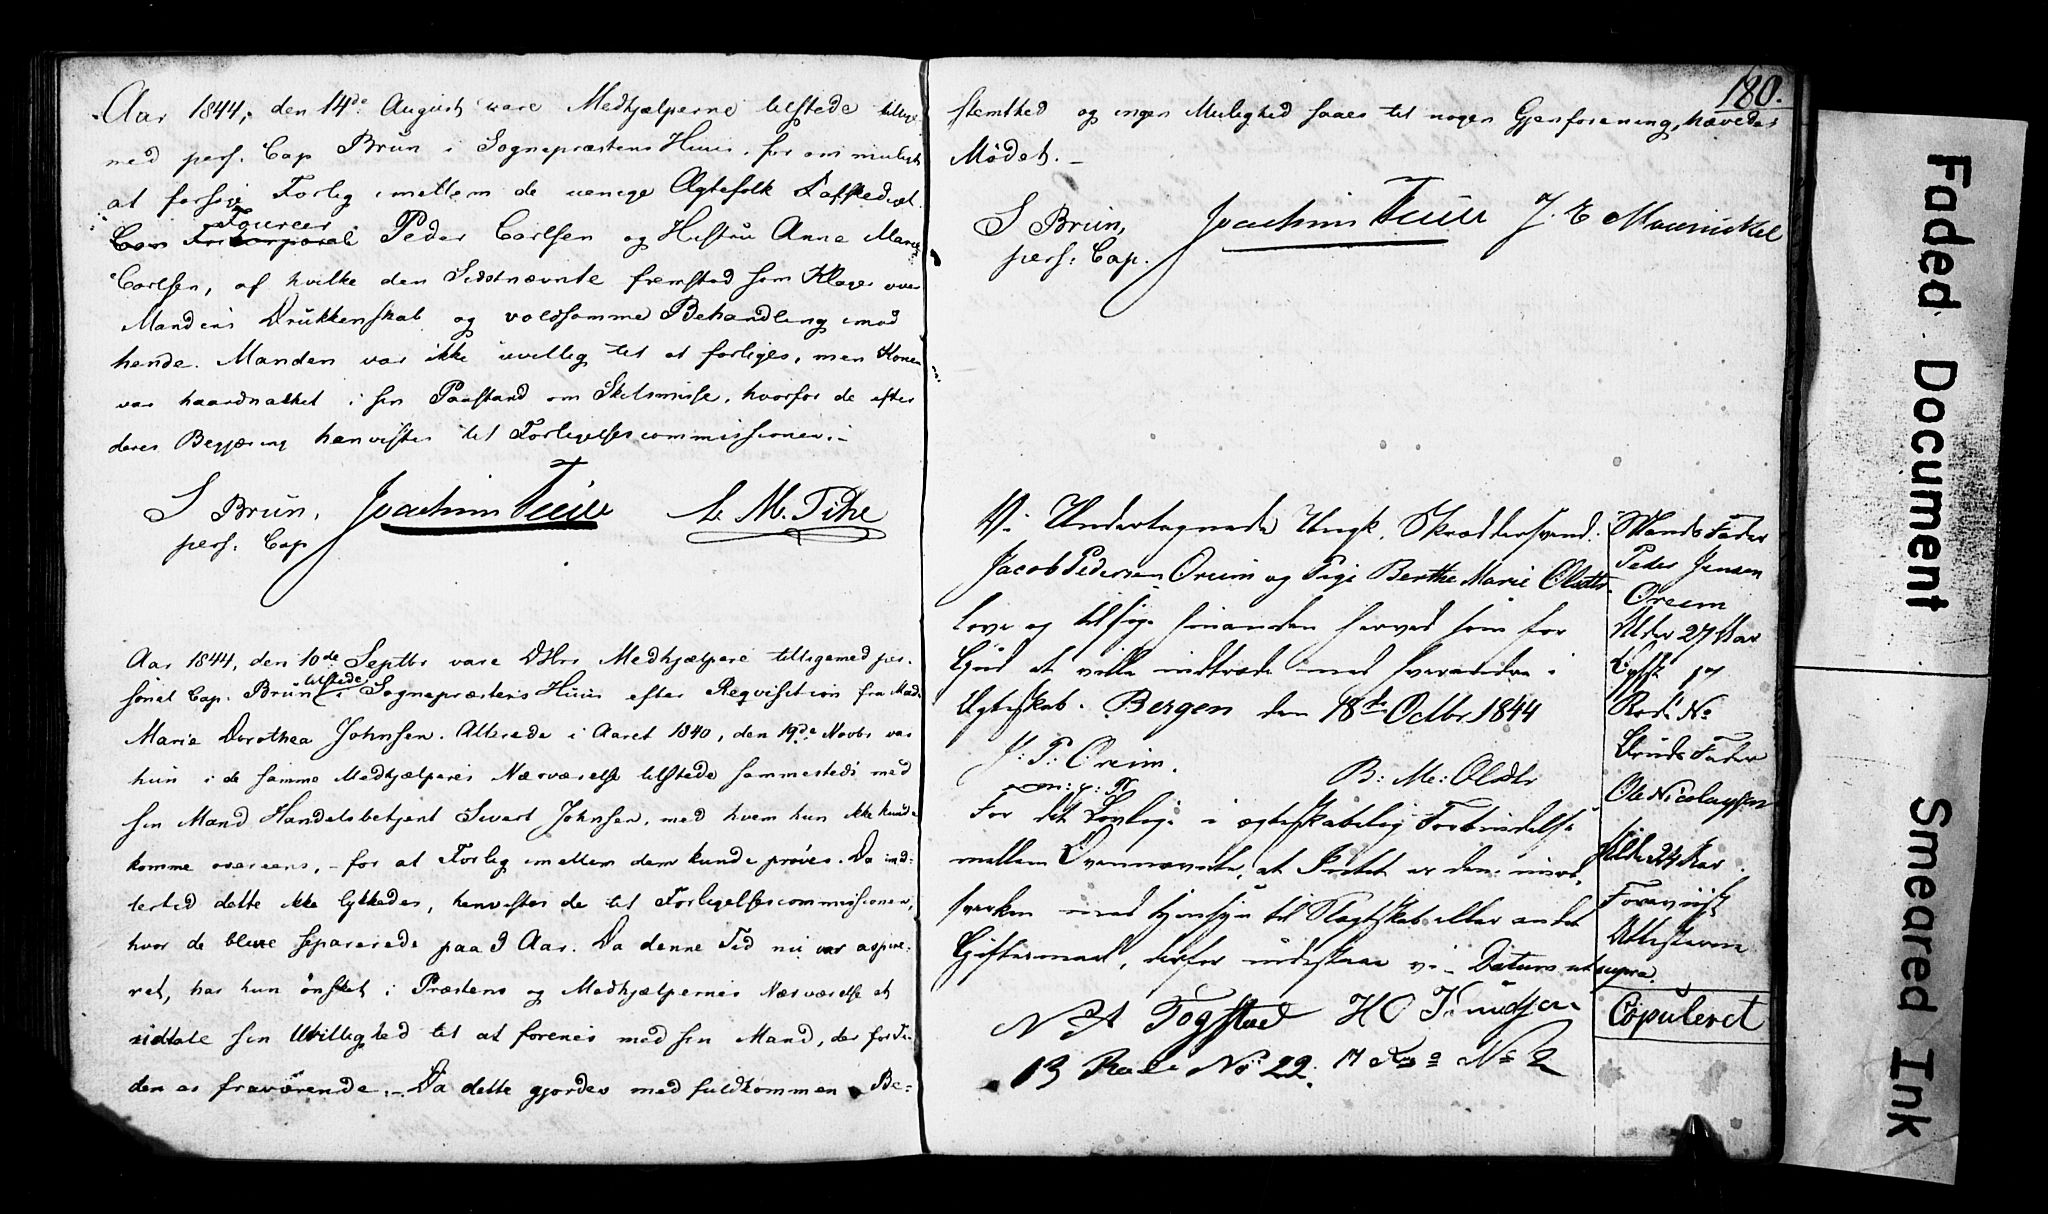 Aar 1844, den 14de August vare Medhjælperne tilstede tillige
med pers. Cap Brun i Sognepræstens Huus, for om muligt
at forsøge Forlig imellem de uenige Ægtefolk Dafskediget
Foureer
Peder Carlsen og Hustru Anna Marie
Carlsen, af hvilke den Sidstnævnte fremstod som Klager over
Mandens Drukkenskab og voldsomme Behandling imod
hende. Manden var ikke uvillig til at forliges, men Konen
var haardnakket i sin Paastand om Skilsmisse, hvorfor de efter
deres Begjæring henvistes til Forligelsescommissionen.-
S Brun, Joachim
pers: Cap
Aar 1844, den 10de Septbr vare DHrr Medhjælpere tilligemed per-
tilstede
sonel Cap. Brun i Sognepræstens Huus efter Reqvisition fra Mad.
Marie Dorothea Johnsen. Allerede i Aaret 1840, den 19de Novbr var
hun i de samme Medhjælperes Nærværelse tilstede sammesteds med
sin Mand Handelsbetjent Sivert Johnsen, med hvem hun ikke kunde
komme overeens, - for at Forlig imellem dem kunde prøves. Da imid-
lertid dette ikke lykkedes, henvistes de til Forligelsescommissionen,
hvor de bleve separerede paa 3 Aar. Da denne Tid nu var expire-
ret, har hun ønsket i Præstens og Medhjælpernes Nærværelse at
udtale sin Uvillighed til at forenes med sin Mand, der for Ti-
den er fraværende.- Da dette gjordes med fuldkommen Be-
180.
stemthed og ingen Mulighed saaes til nogen Gjenforening, hævedes
Mødet.-
S Brun, Joachim J. E Mowinckel
pers: Cap.
Vi Undertegnede Ungk. Skræddersvend
Jacob Pedersen Oreim og Pige Berthe Marie Olsdtr
love og tilsige hinanden herved som for
Gud at ville indtræde med hverandre i
Ægteskab. Bergen den 18de Octbr 1844
J: P: Oreim.
m: p: P
B: M: Olsdtr
For det Lovlige i ægteskabelig Forbindelse
mellem Ovennævnte, at Intet er dem imod,
hverken med Hensyn til Slægtskab eller andet
Giftermaal, derfor indestaae vi - Datum ut supra.
N A Togstad H O Knudsen
13 Rode No 22. 17 Rode No 2
Mands Fader
Peder Jensen
Oreim
Alder 27 Aar
17
Rode No
Bruds Fader
Ole Nicolaysen
Alder 24 Aar.
Foreviist
Attesterne
Copuleret
Faded Document
Smeared Ink